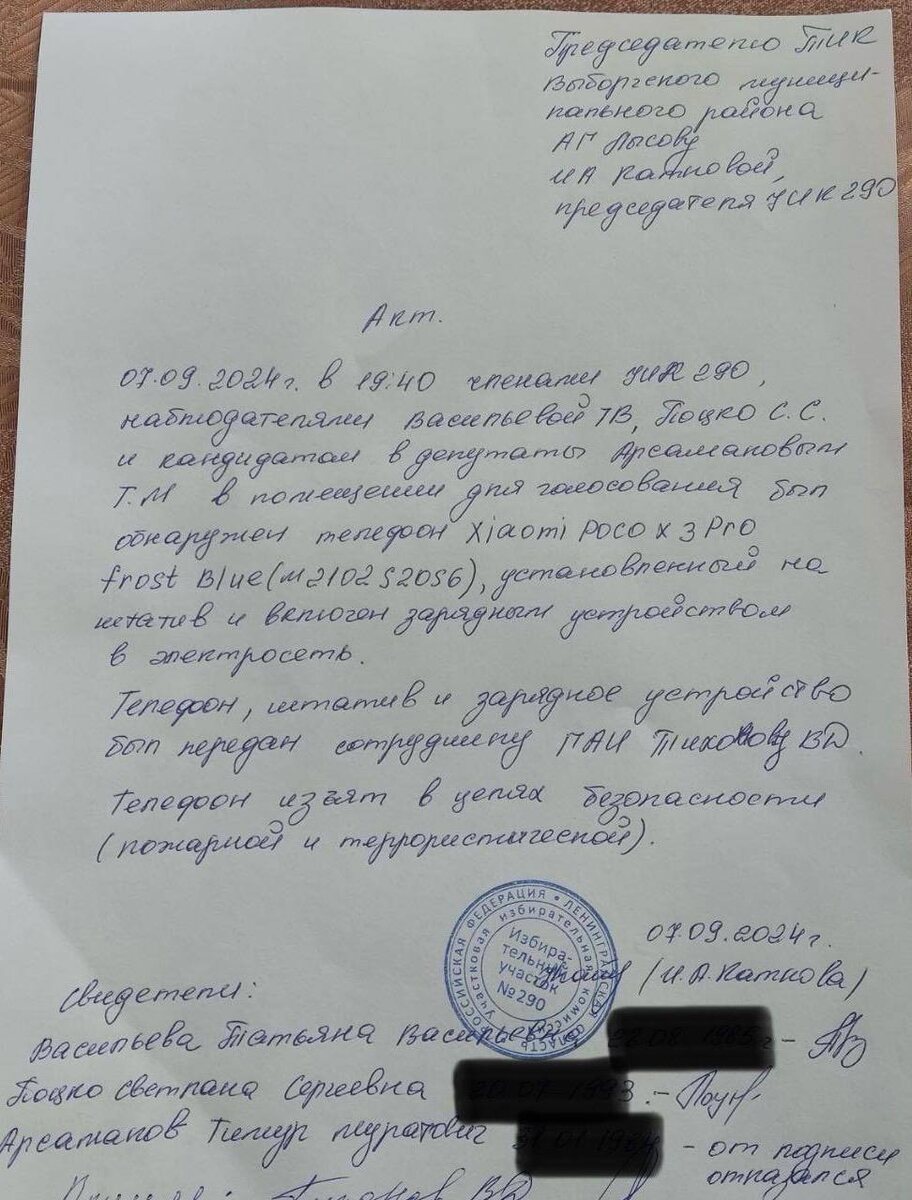 Председателю ТИК
Выборгского муници-
пального района
АГ Лысову
ИА Катковой,
председателя УИК 290
Акт.
07.09.2024г. в 19:40 членами УИК 290,
наблюдателями Васильевой ТВ, Поцко С.С.
и кандидатом в депутаты Арсамаковым
Т.М в помещении для голосования был
обнаружен телефон Xiaomi Poco x 3 Pro
frost Blue (M2102S20S6), установленный на
штатив и включен зарядным устройством
в электросеть.
Телефон, штатив и зарядное устройство
был передан сотруднику ПАИ ВД.
Телефон изъят в целях безопасности
(пожарной и террористической).
07.09.2024г.
(И.А.Каткова)
РОССИЙСКАЯ ФЕДЕРАЦИЯ • ЛЕНИНГРАДСКАЯ ОБЛАСТЬ
Участковая избирательная комиссия
Избира-
тельный
участок
№290
Свидетели:
Васильева Татьяна Васильевна -
Поцко Светлана Сергеевна -
Арсамаков Тимур Муратович - от подписи
отказался
ВД